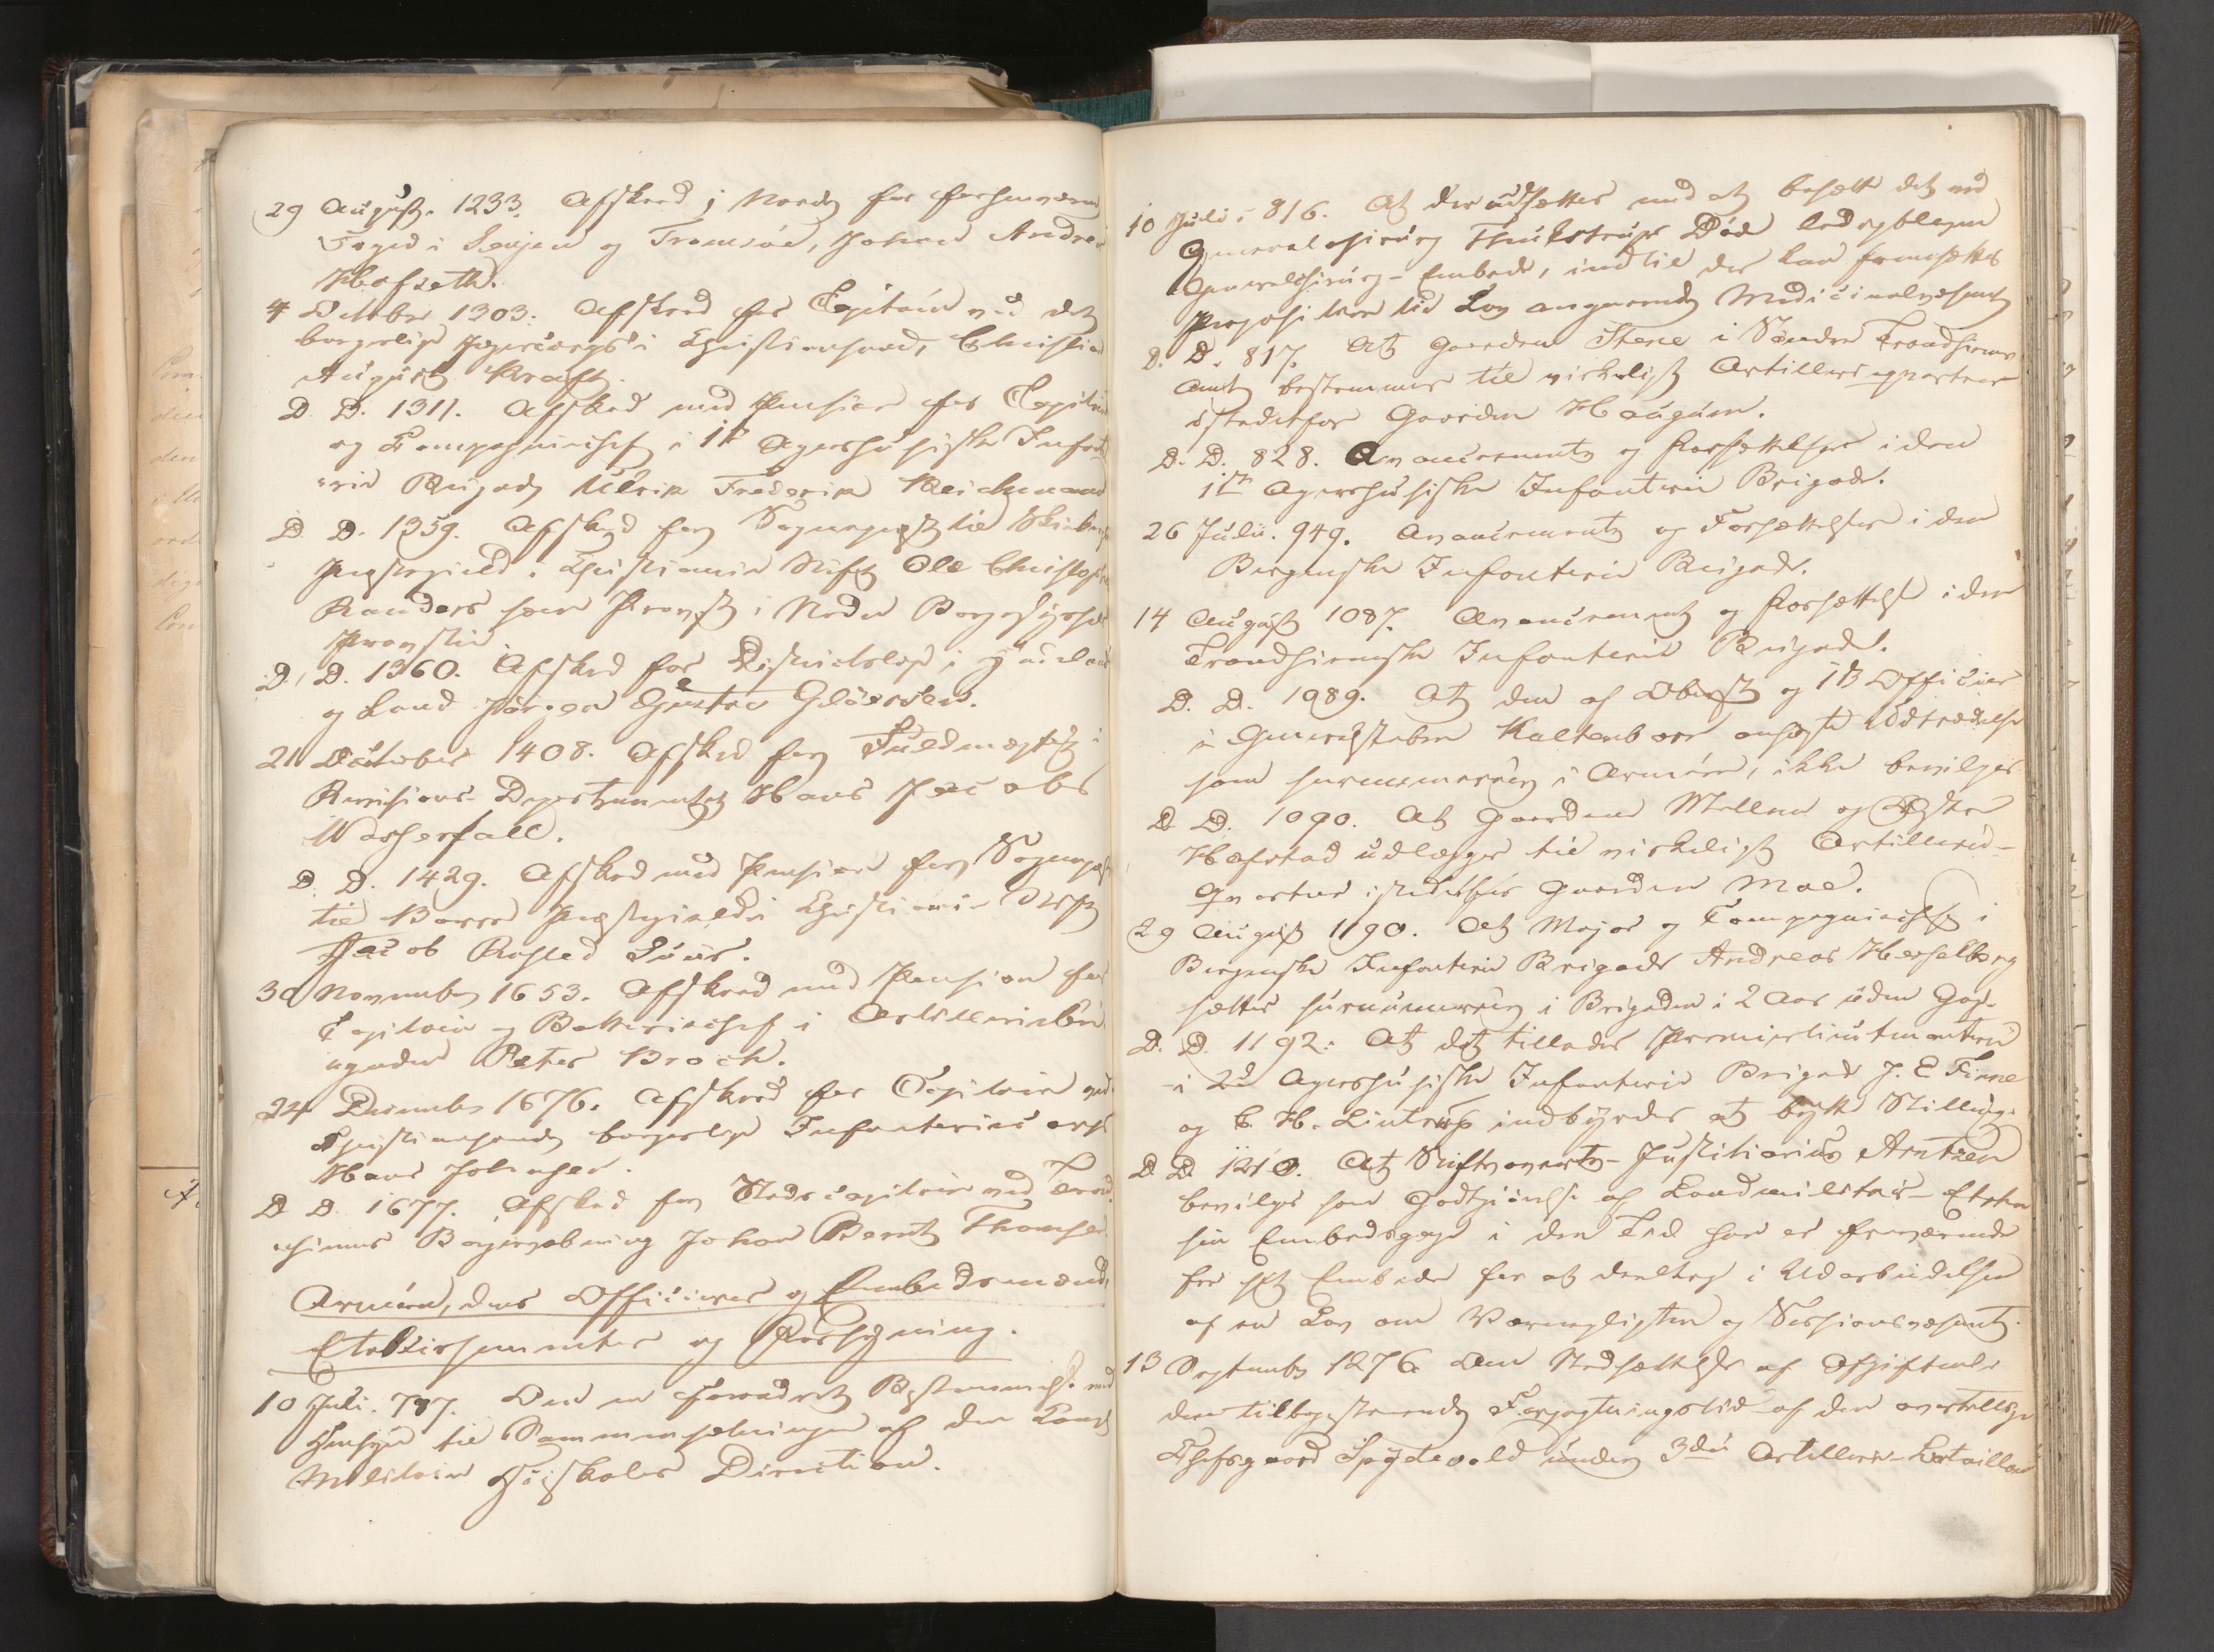 29 August. 1233. Afsked i Naade for forhenværende
Foged i Senjen og Tromsöe, Johan Andreas
Hofseth.
4 October 1303. Afsked for Capitain ved det
borgerlige Jægercorps i Christiansand, Christian
August Kraft.
D. D. 1311. Afsked med Pension for Capitain
og Compagniechef i 1ste Agershusiske Infante-
rie Brigade Ulrik Frederik Kleichmann
D. D. 1359. Afsked for Sogneprest til
Præstegield i Christiania Stift Ole Christopher
Randers som Provst i Nedre Borgesyssels
Provstie.
D. D. 1360. Afsked for Districtslæge i
og Land Jörgen Gustav Glöersen.
21 October 1408. Afsked for Fuldmægtig i
Revisions-Departementet Hans Jacobs
Wasserfall.
D. D. 1429. Afsked med Pension for Sogneprest
til Borre Præstegield i Christiania Stift
Jacob Rosted Suur.
30 November 1653. Afsked med Pension for
Capitain og Batteriechef i Artilleriebri-
gaden Peter Broch.
24 December 1676. Afsked for Capitain ved
Christiansands borgerlige Infanteriecorps
Hans Johnsen.
D. D. 1677. Afsked for Stadscapitain ved Trond-
hiems Borgerväbning Johan Bernt Thomsen.
Armeen, dens Officierer og Embedsmænd,
Etablissementer og Forsyning.
10 Juli. 797. Om en forandret Bestemmelse med
Hensyn til Sammensætningen af den
Militaire Höiskoles Direction.
10 Julii 816. At der udsættes med at besætte det ved
Generalchirurg Thulstrups Död ledigblevne
Generalchirurg-Embede, indtil der kan fremsættes
Proposition til Lov angaaende Medicinalvæsenet
D. D. 817. At Gaarden Stene i Söndre Trondhiems
Amt bestemmes til virkeligt Artillerieqvarteer
istedetfor Gaarden Haugum.
D. D. 828. Avancement og Forsættelser i den
1ste Agershusiske Infanterie Brigade.
26 Julii. 949. Avancement og Forsættelser i den
Bergenske Infanterie Brigade.
14 August 1087. Avancement og Forsættelse i den
Trondhiemske Infanterie Brigade.
D. D. 1989. At den af Oberst og 1B Officier
i Generalstaben Kaltenborn ansögte Udtrædelse
som surnumerair i Armeen, ikke bevilges
D. D. 1090. At Gaardene Mellem og Östre
Hafstad udlægges til virkeligt Artillerie-
Qvarteer istedetfor Gaarden Moe.
29 August 1190. At Major og Compagniechef i
Bergenske Infanterie Brigade Andreas Hesselberg
sættes surnumerair i Brigaden i 2 Aar uden Gage.
D. D. 1192. At det tillades Premierlieutenanterne
i 2den Agershusiske Infanterie Brigade J. E Finne
og C. H. Lintrup indbyrdes at bytte Stilling.
D. D. 1210. At Stiftsoverrets-Justitiarius Arntzen
bevilges som Godtgiörelse af Landmilitair-Etaten
sin Embedsgage i den Tid han er fraværende
fra sit Embede for at deeltage i Udarbeidelsen
af en Lov om Værnepligten og Sessionsvæsenet.
13 September 1276. Om Nedsættelse af Afgiften
den tilbagestaaende Forpagtningstid af den overtallige
Chefsgaard Spydevold under 3die Artillerie-Batallion